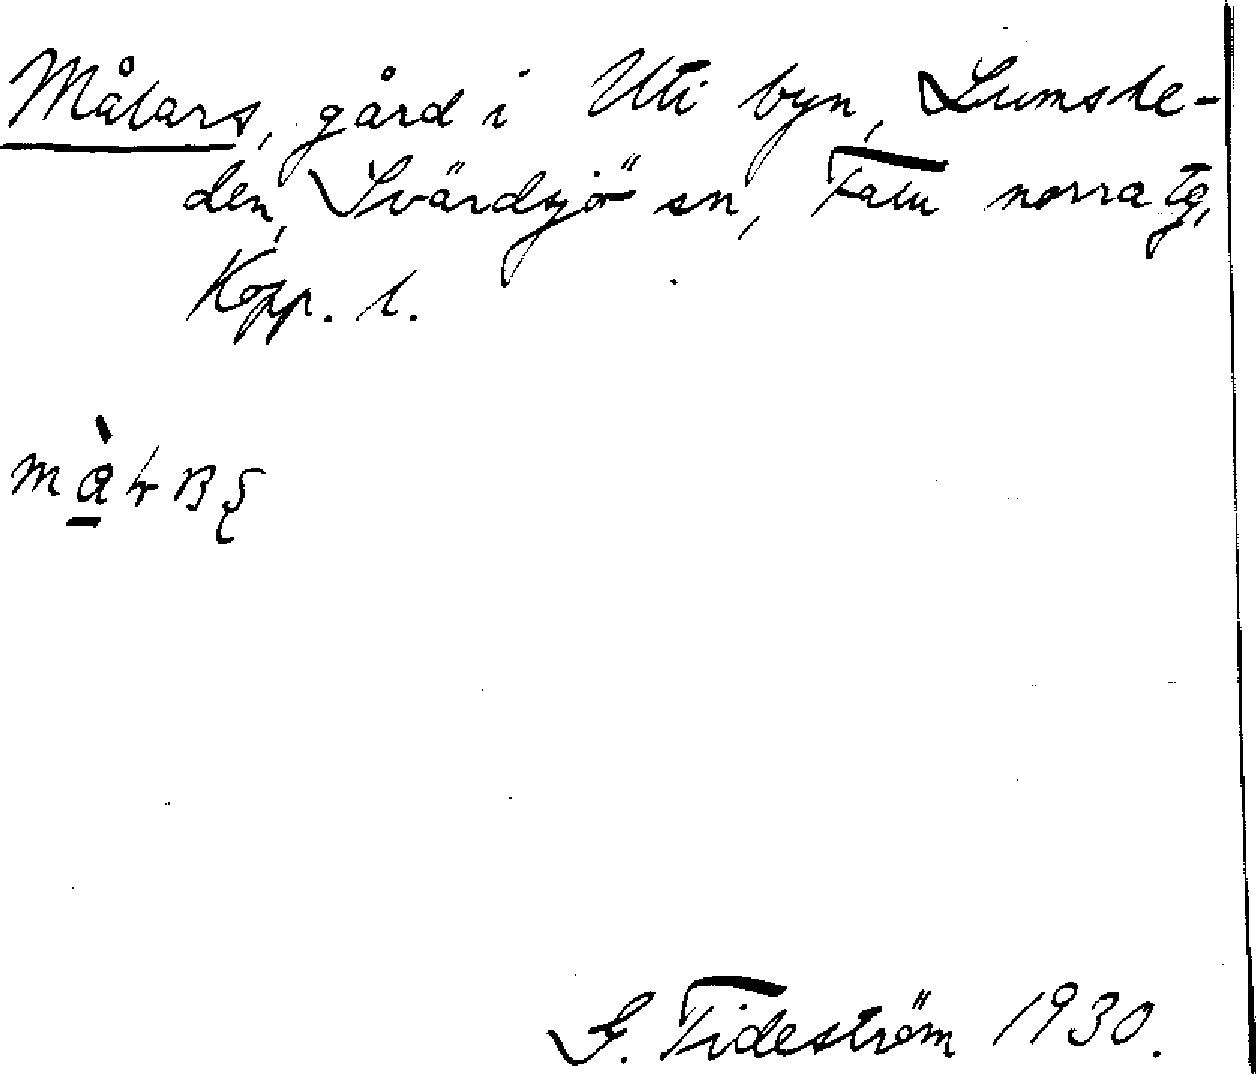 Målars, gård i Uti byn, Lumshe-
den, Svärdsjö sn, Falu norra tg,
Kopp. l.
G. Tideström 1930.